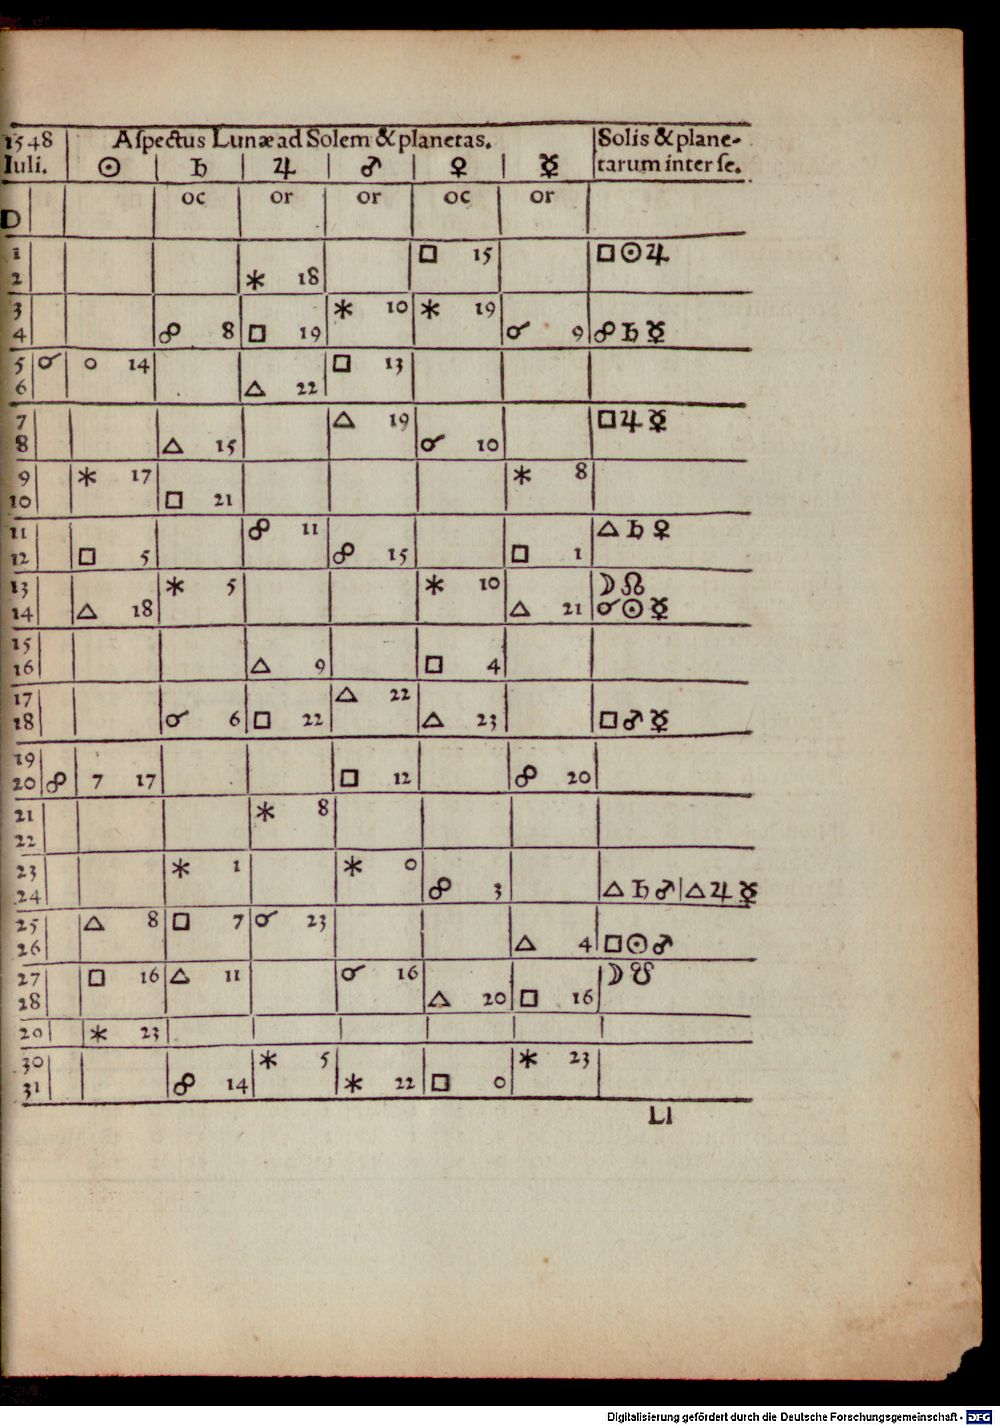 1548 Aſpectus Lunæ ad Solem & planetas. Solis & plane-
Iuli. ☉ ♄ ♃ ♂ ♀ ☿ tarum inter ſe.
D oc or or oc or
1 □ 15 □ ☉ ♃
2 ⚹ 18
3 ⚹ 10 ⚹ 19
4 ☍ 8 □ 19 ☌ 9 ☍ ♄ ☿
5 ☌ 0 14 □ 13
6 △ 22
7 △ 19 □ ♃ ☿
8 △ 15 ☌ 10
9 ⚹ 17 ⚹ 8
10 □ 21
11 ☍ 11 △ ♄ ♀
12 □ 5 ☍ 15 □ 1
13 ⚹ 5 ⚹ 10 ☽ ☊
14 △ 18 △ 21 ☌ ☉ ☿
15
16 △ 9 □ 4
17 △ 22
18 ☌ 6 □ 22 △ 23 □ ♂ ☿
19
20 ☍ 7 17 □ 12 ☍ 20
21 ⚹ 8
22
23 ⚹ 1 ⚹ 0
24 ☍ 3 △ ♄ ♂ | △ ♃ ☿
25 △ 8 □ 7 ☌ 23
26 △ 4 □ ☉ ♂
27 □ 16 △ 11 ☌ 16 ☽ ☋
28 △ 20 □ 16
20 ⚹ 23
30 ⚹ 5 ⚹ 23
31 ☍ 14 ⚹ 22 □ 0
Ll
Digitalisierung gefördert durch die Deutsche Forschungsgemeinschaft - DFG